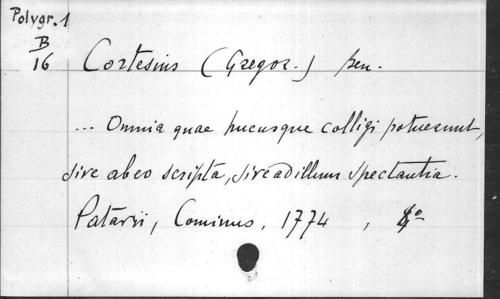 Polygr. 1
B
16
Cortesius (Gregor.) sen.
... Omnia quae hucusque colligi potuerunt,
sive ab eo scripta, sive ad illum spectantia.
Patavii, Cominus, 1774, 4º